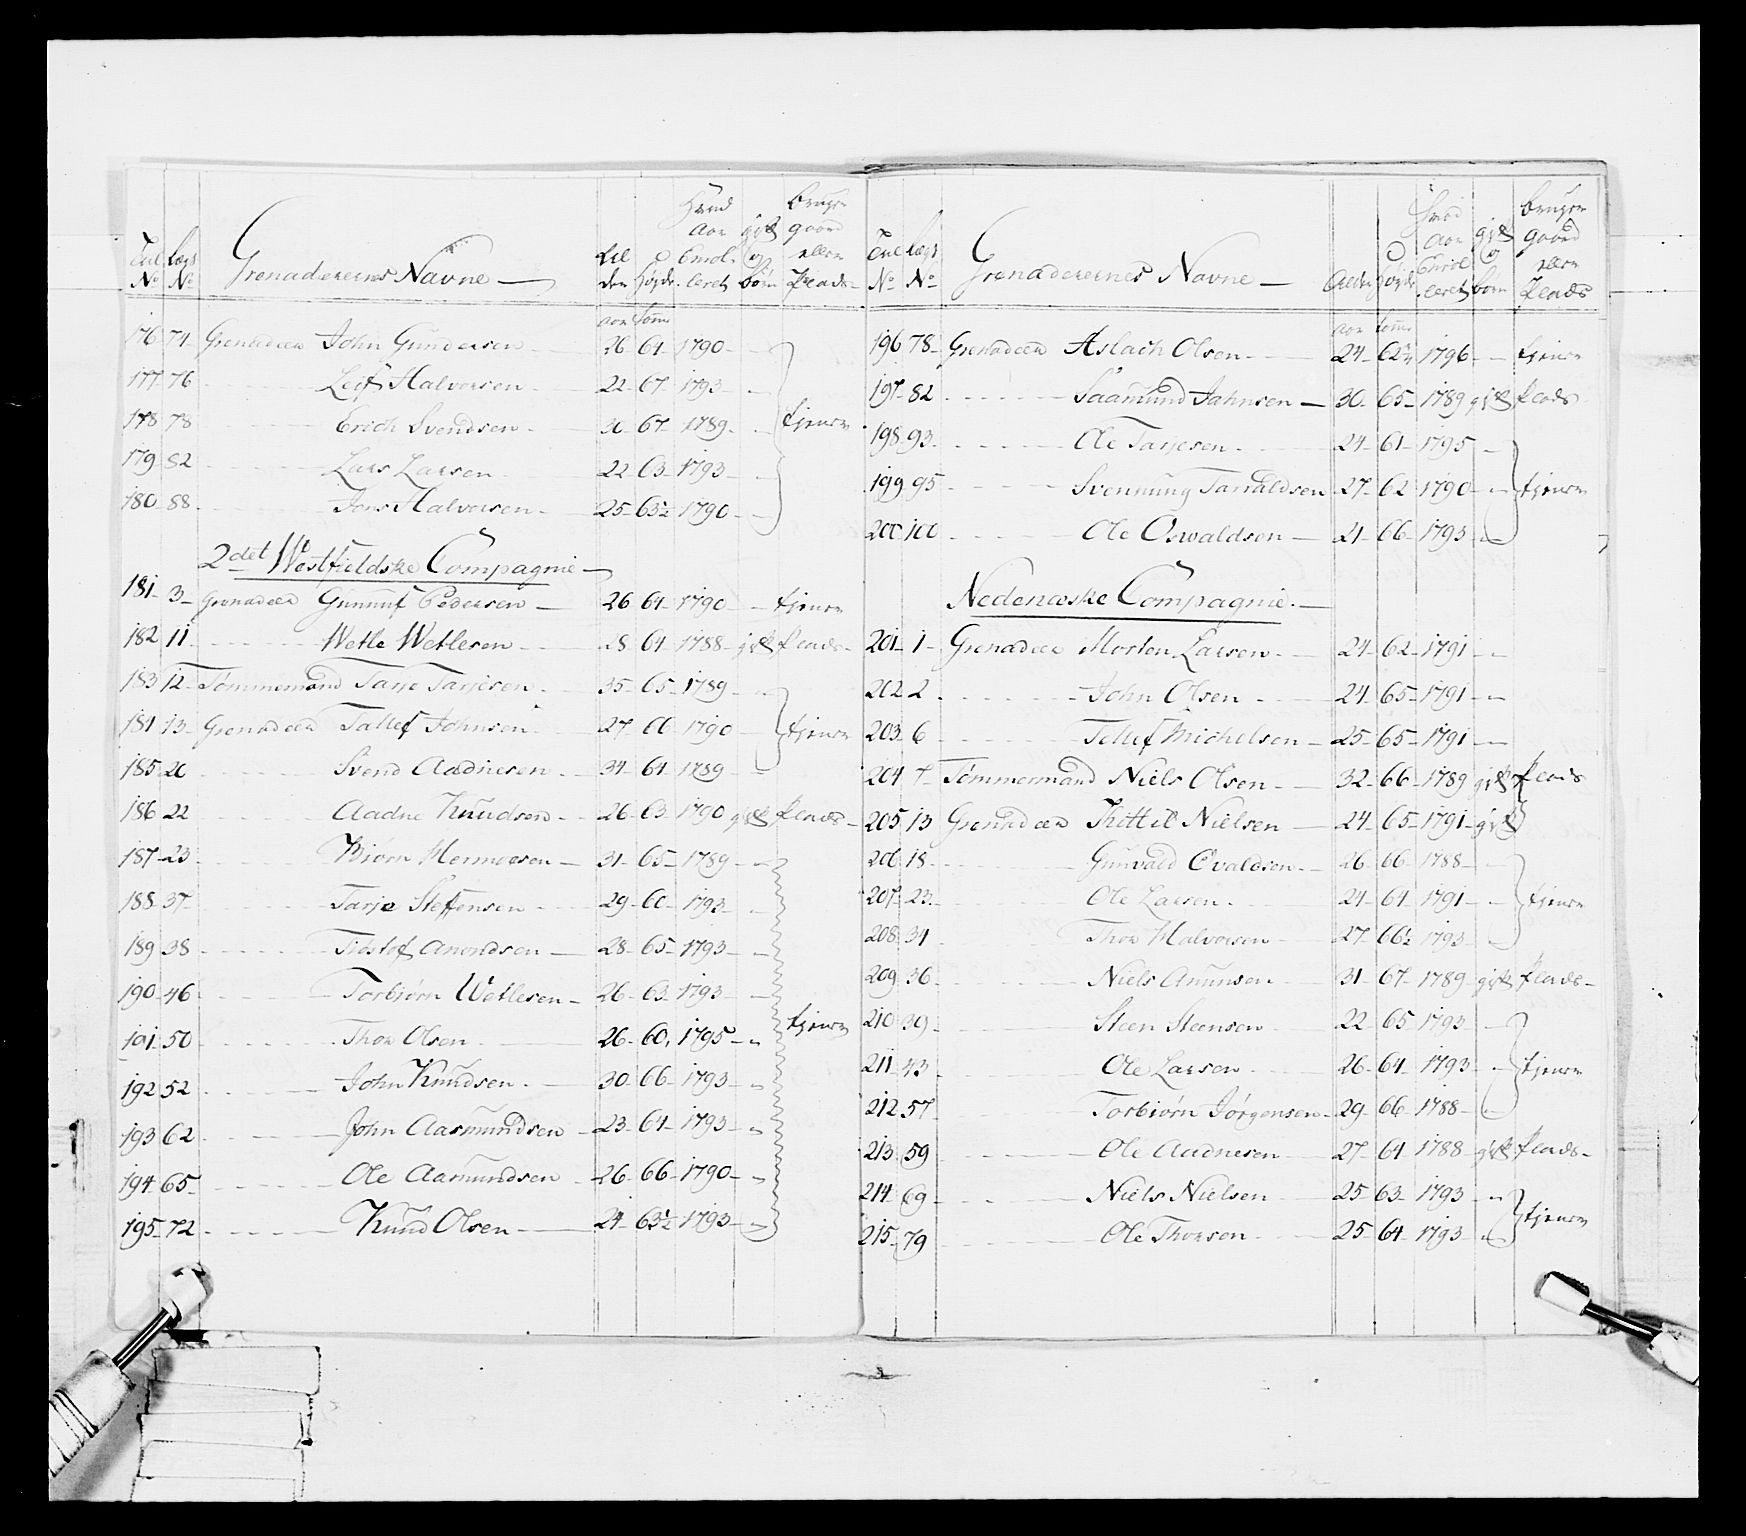 Grenaderernes Navne
No No
aar tom
176 74 Grenadeer John Gundersen 26 64 1790
177 76 Leif Halvorsen 22 67 1793
178 78 Erich Svendsen 67 1789 tjener
179 82 Lars Larsen 22 63 1793
180 88 Jens Halvorsen 25 63½ 1790
2det Westfieldske Compagnie
181 3 Grenadeer Gunnuf Pedersen 26 64 1790 tjener
182 11 Wetle Wetlesen 28 64 1788 gift Plads
183 12 Tømmermand Tarje Tarjesen 35 65 1789
184 13 Grenadeer Tallef Johnsen 27 66 1790 tjener
185 20 Svend Aadnesen 34 64 1789
186 22 Aadne Knudsen 26 63 1790 gift Plads
187 23 Biorn 31 65 1789
188 37 Tarje Steffensen 29 60 1793
189 38 Tiostof Anondsen 28 65 1793
190 46 Torbiørn Wetlesen 26 63 1793
191 50 Thor Olsen 26 60 1795 tjener
192 52 John Knudsen 30 66 1793
193 62 John Aasmundsen 23 64 1793
194 65 Ole Aamundsen 26 66 1790
195 72 Knud Olsen 24 63½ 1793
Grenaderernes Navne
No No
aar tom
196 78 Grenadeer Aslach Olsen 24 1796 tjener
197 82 Saamund Jahnsen 30 65 1789 gift Plads
198 93 Ole Tarjesen 24 61 1795
199 95 Svennung Tarraldsen 27 62 1790 tjener
200 100 Ole Oswaldsen 21 66 1793
Nedenæske Compagnie
201 1 Grenadeer Morten Larsen 24 62 1791
202 2 John Olsen 24 65 1791
203 6 Tellef Michelsen 25 65 1791
204 7 Tømmermand Niels Olsen 32 66 1789 gift Plads
205 13 Grenadeer Kittil Nielsen 24 65 1791 gift
206 18 Gunvald Evaldsen 26 66 1788
207 23 Ole Larsen 24 64 1791 tjener
208 34 Thor Halvorsen 27 66½ 1793
209 36 Niels Amunsen 31 67 1789 gift Plads
210 39 Steen Steensen 22 65 1793
211 43 Ole Larsen 26 64 1793 tjener
212 57 Torbiørn Jørgensen 29 66 1788
213 59 Ole Aadnesen 27 64 1788 gift Plads
214 69 Niels Nielsen 25 63 1793
215 79 Ole Thorsen 25 64 1793 tjener